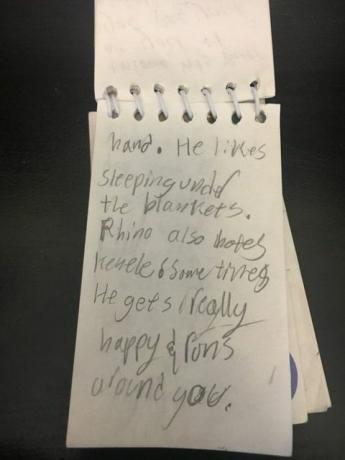 hand. He likes
sleeping under
the blankets.
Rhino also hates
kenele & Some times
He gets really
happy & runs
around you.